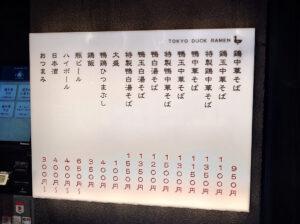 TOKYO DUCK RAMEN
鶏中華そば 950円
鶏玉中華そば 1100円
特製鶏中華そば 1350円
鴨中華そば
鴨玉中華そば
特製鴨中華そば 1550円
鴨白湯そば 1200円
鴨玉白湯そば
特製鴨白湯そば
大盛 100円
鴨鶏ひつまぶし 400円
鶏飯 350円
瓶ビール 650円
ハイボール 400円
日本酒 400円~
おつまみ 300円~